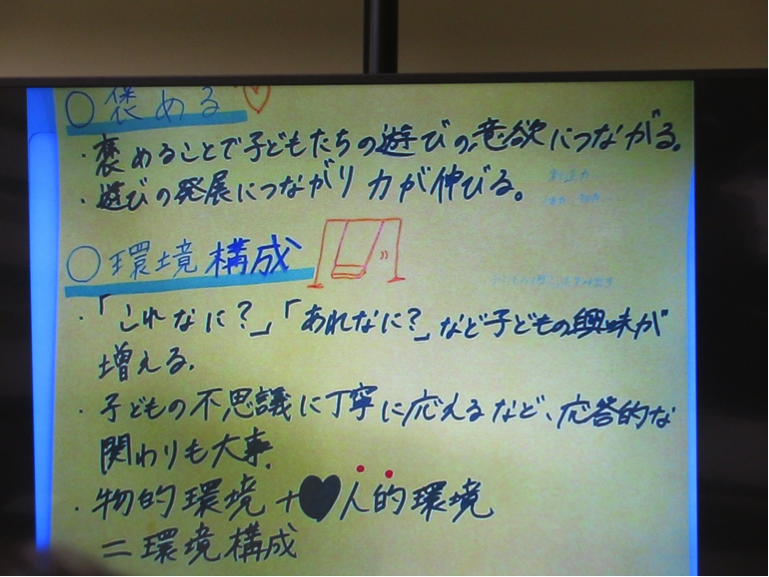 ○褒める
・褒めることで子どもたちの遊びの意欲につながる。
・遊びの発展につながり力が伸びる。
○環境構成
・「これなに？」「あれなに？」など子どもの興味が
増える。
・子どもの不思議に丁寧に応えるなど、応答的な
関わりも大事。
・物的環境+♥人的環境
=環境構成